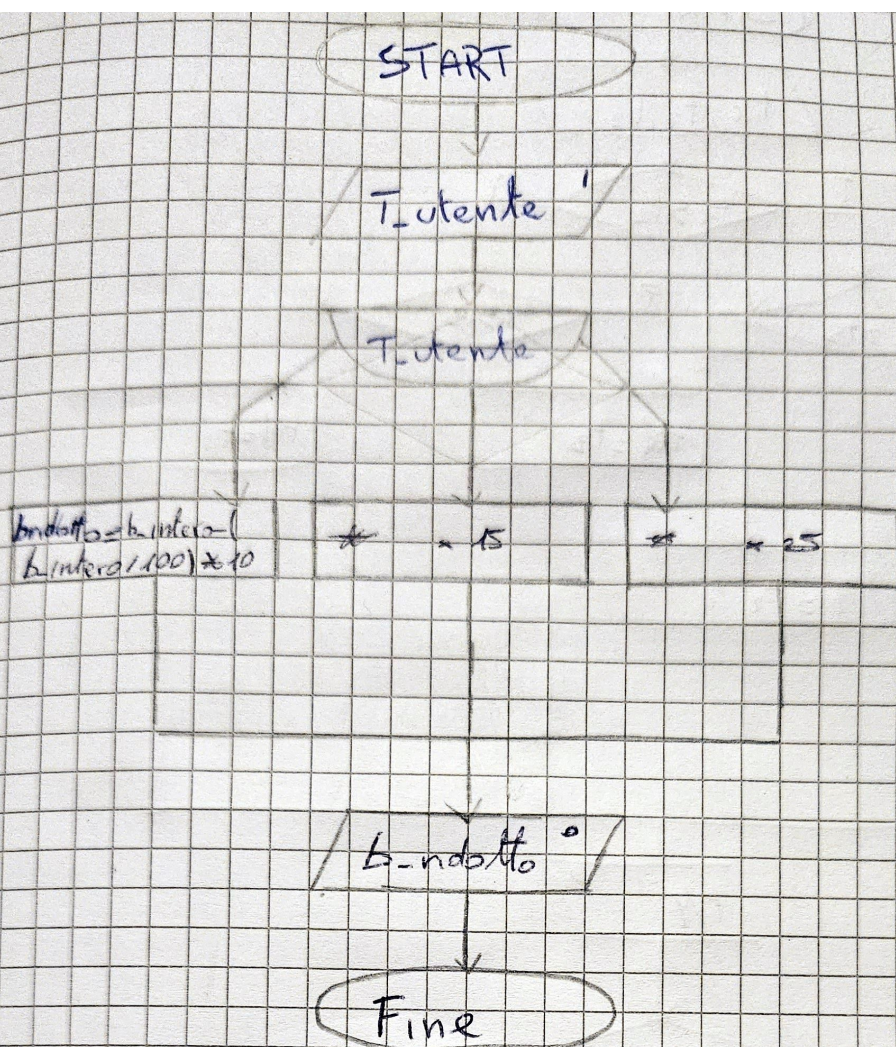 START
T_utente I
T_utente
bridotto=b_intero-(
b_intero/100)*10
* * 15
* * 25
b_ridotto o
Fine